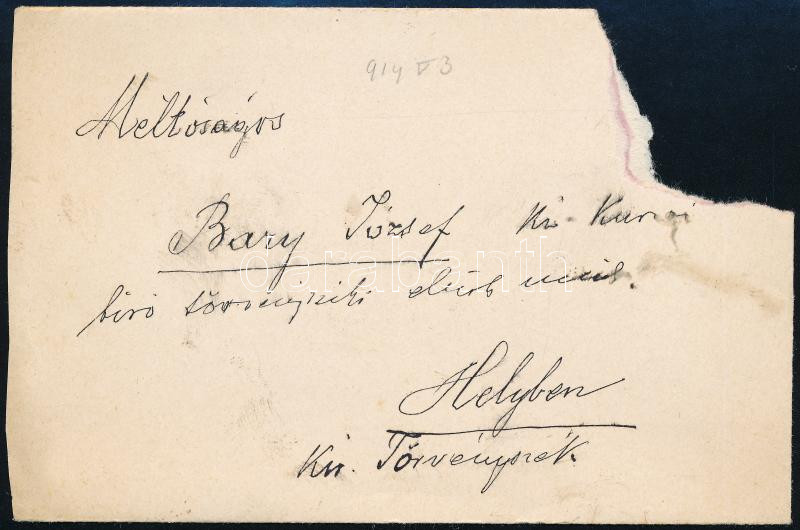 914 V 3
Méltóságos
Bary József kir. Kuriai
biró törvényszéki elnök
Helyben
Kir. Törvényszék
darabanth